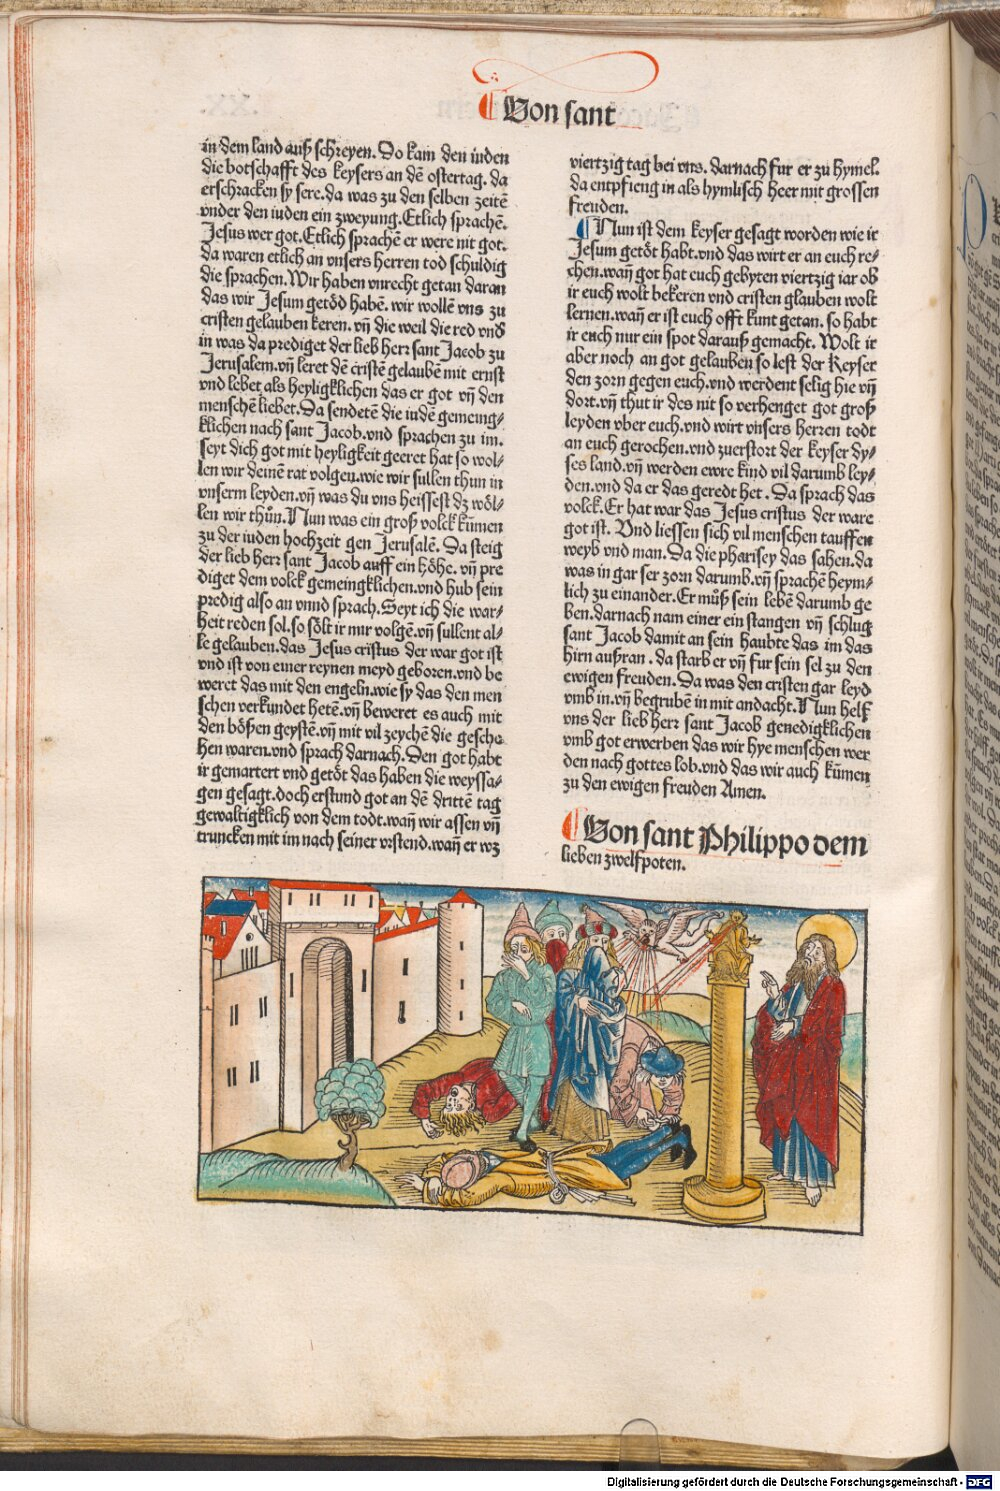 ¶ Von sant
in dem land auß schreyen. Do kam den iuden
die botschafft des keysers an dē ostertag. da
erschracken sy sere. da was zu den selben zeitē
vnder den iuden ein zweyung. Etlich sprachē.
Jesus wer got. Etlich sprachē er were nit got.
da waren etlich an vnsers herren tod schuldig
die sprachen. Wir haben vnrecht getan daran
das wir Jesum getöd habē. wir wollē vns zu
cristen gelauben keren. vñ die weil die red vnd
in was da prediget der lieb herr sant Jacob zu
Jerusalem. vñ leret dē cristē gelaubē mit ernst
vnd lebet als heyligklichen das er got vñ den
menschē liebet. Da sendetē die iudē gemeing⸗
klichen nach sant Jacob. vnd sprachen zu im.
seyt dich got mit heyligkeit geeret hat so wol⸗
len wir deinē rat volgen. wie wir sullen thun in
vnserm leyden. vñ was du vns heissest dz wöl⸗
len wir thůn. Nun was ein groß volck kūmen
zu der iuden hochzeit gen Jerusalē. Da steig
der lieb herr sant Jacob auff ein höhe. vñ pre
diget dem volck gemeingklichen. vnd hub sein
predig also an vnnd sprach. Seyt ich die war⸗
heit reden sol. so sölt ir mir volgē. vñ sullent al⸗
le gelauben. das Jesus cristus der war got ist
vnd ist von einer reynen meyd geboren. vnd be
weret das mit den engeln. wie sy das den men
schen verkundet hetē. vñ beweret es auch mit
den bößen geystē. vñ mit vil zeychē die gesche
hen waren. vnd sprach darnach. Den got habt
ir gemartert vnd getöt das haben die weyssa⸗
gen gesagt. doch erstund got an dē drittē tag
gewaltigklich von dem todt. wañ wir assen vñ
truncken mit im nach seiner vrstend. wañ er wz
viertzig tag bei vns. darnach fur er zu hymel.
da entpfieng in als hymlisch heer mit grossen
freuden.
¶ Nun ist dem keyser gesagt worden wie ir
Jesum getöt habt. vnd das wirt er an euch re⸗
chen. wañ got hat euch gebyten viertzig iar ob
ir euch wolt bekeren vnd cristen glauben wolt
lernen. wañ er ist euch offt kunt getan. so habt
ir euch nur ein spot darauß gemacht. Wolt ir
aber noch an got gelauben so lest der Keyser
den zorn gegen euch. vnd werdent selig hie vñ
dort. vñ thut ir des nit so verhenget got groß
leyden vber euch. vnd wirt vnsers herren todt
an euch gerochen. vnd zuerstort der keyser dy⸗
ses land. vñ werden ewre kind vil darumb ley⸗
den. vnd da er das geredt het. Da sprach das
volck. Er hat war das Jesus cristus der ware
got ist. Vnd liessen sich vil menschen tauffen
weyb vnd man. Da die pharisey das sahen. da
was in gar ser zorn darumb. vñ sprachē heym⸗
lich zu einander. Er můß sein lebē darumb ge
ben. darnach nam einer ein stangen vñ schlug
sant Jacob damit an sein haubte das im das
hirn außran. da starb er vñ fur sein sel zu den
ewigen freuden. Da was den cristen gar leyd
vmb in. vñ begrubē in mit andacht. Nun helf
vns der lieb herr sant Jacob genedigklichen
vmb got erwerben das wir hye menschen wer
den nach gottes lob. vnd das wir auch kūmen
zu den ewigen freuden Amen.
¶ Von sant Philippo dem
lieben zwelfpoten.
Digitalisierung gefördert durch die Deutsche Forschungsgemeinschaft - DFG